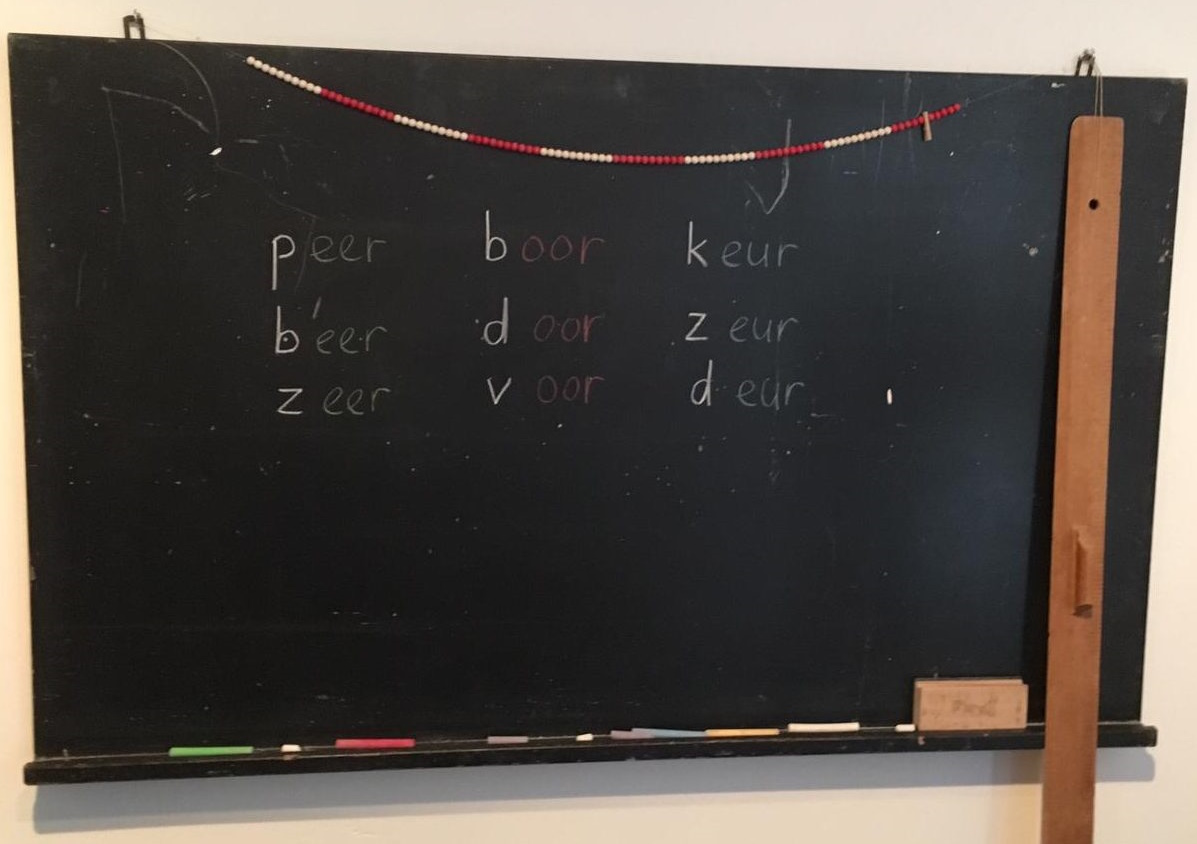 peer boor keur
beer door zeur
zeer voor deur